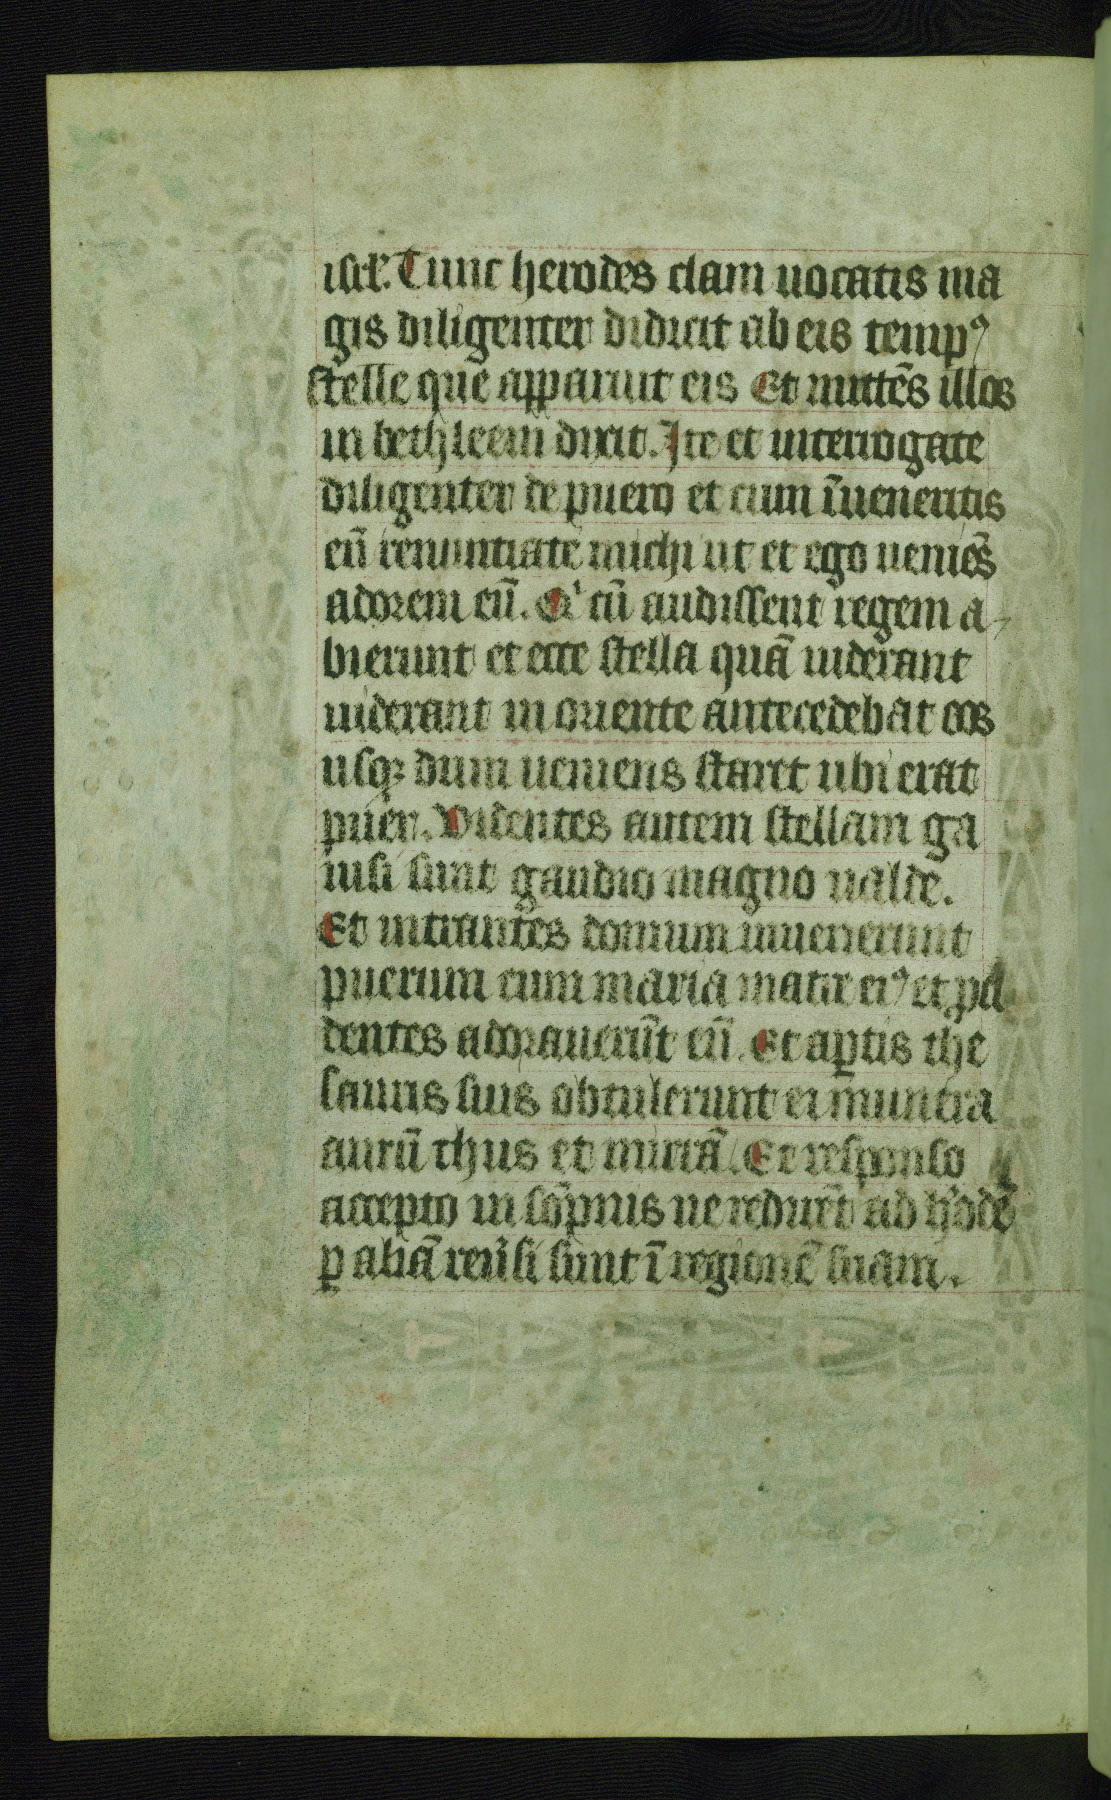 isrł. Tunc herodes clam uocatis ma
gis diligenter didicit ab eis tempꝰ
stelle que apparuit eis Et mittēs illos
in bethleem dixit. Ite et interrogate
diligenter de puero et cum īueneritis
eū renuntiate michi ut et ego ueniēs
adorem eū. Qi cū audissent regem a
bierunt et ecce stella quā uiderant
uiderant in oriente antecedebat eos
usqꝫ dum ueniens staret ubi erat
puer. Videntes autem stellam ga
uisi sunt gaudio magno ualde.
Et intrantes domum inuenerunt
puerum cum maria matre eiꝰ et pci
dentes adorauerūt eū. Et aꝑtis the
sauris suis obtulerunt ei munera
aurū thus et mirrā. Et responso
accepto in sōpnis ne redirēt ad h'odē
ꝑ aliā reūsi sunt ī regionē suam.